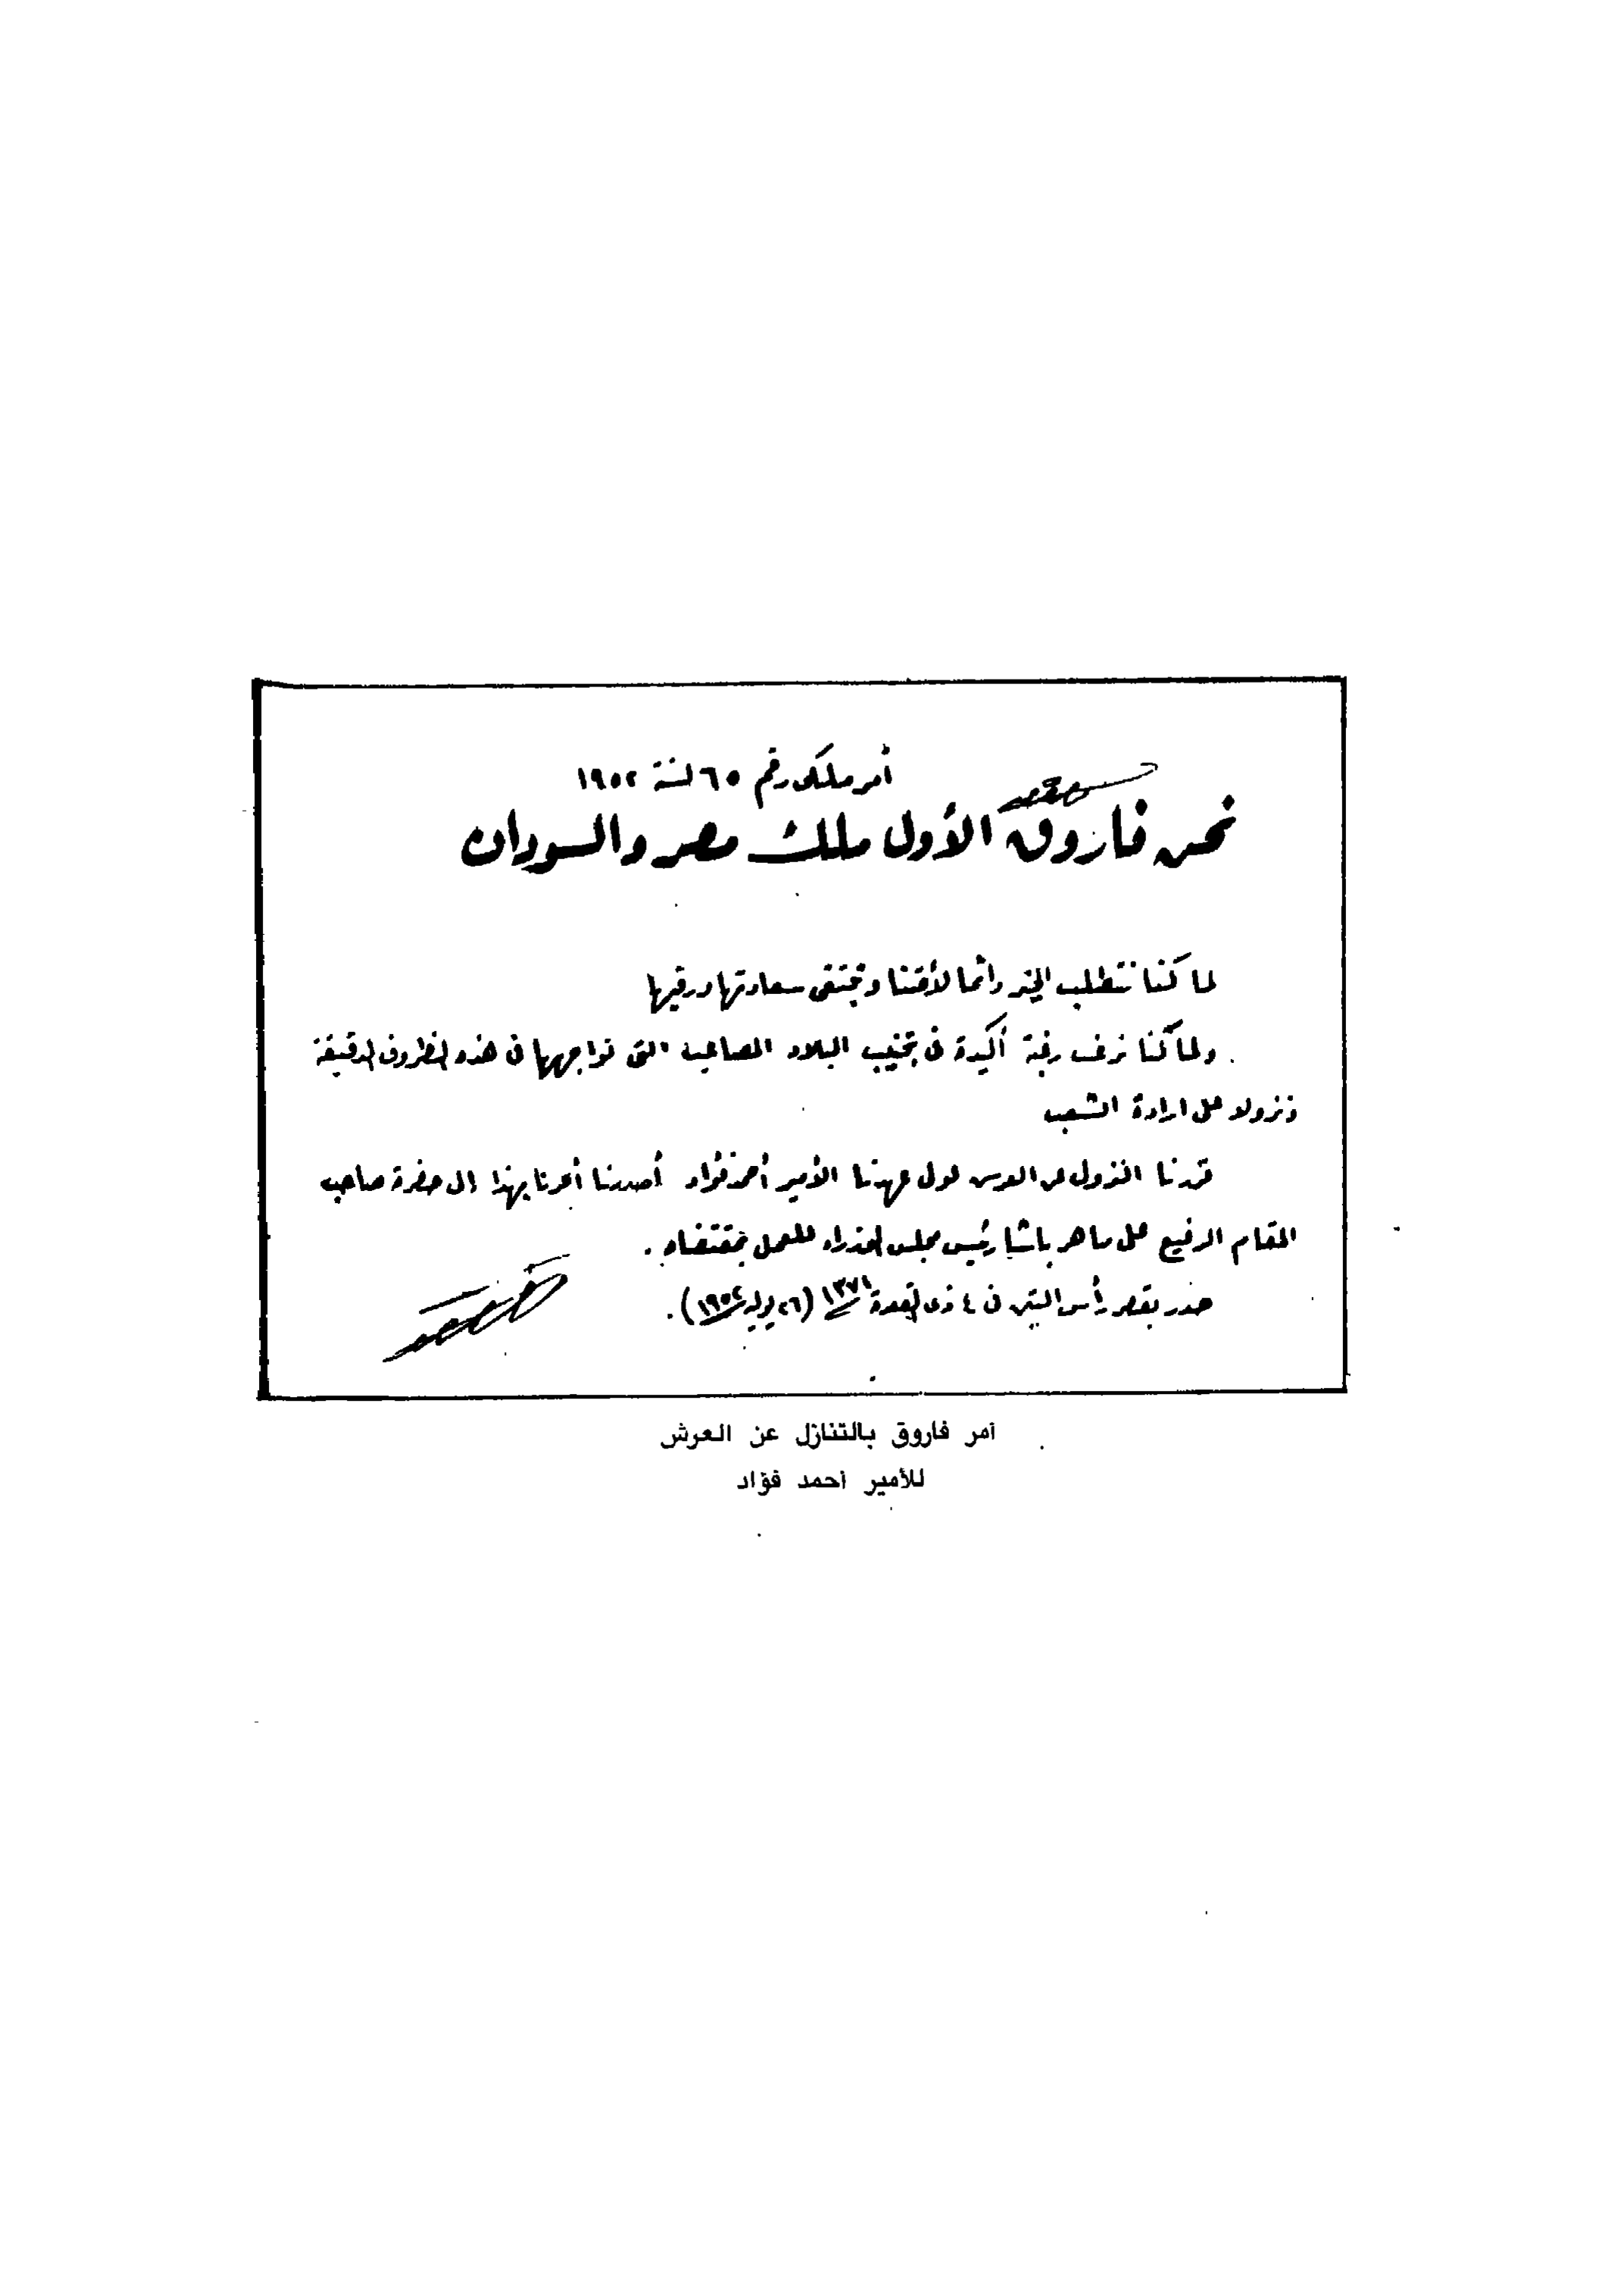 أمر ملكى رقم ٦٥ لسنة ١٩٥٢
نحن فاروق الأول ملك مصر والسودان
لما كنا نتطلب الخير دائما لأمتنا ونبتغى سعادتها ورقيها
ولما كنا نرغب رغبة أكيدة فى تجنيب البلاد المصاعب التى تواجهها فى هذه الظروف الدقيقة
ونزولا على ارادة الشعب
قررنا النزول عن العرش لولى عهدنا الأمير أحمد فؤاد وأصدرنا أمرنا بهذا إلى حضرة صاحب
المقام الرفيع على ماهر باشا رئيس مجلس الوزراء للعمل بمقتضاه .
صدر بقصر رأس التين فى ٤ ذى القعدة ١٣٧١ (٢٦ يوليه ١٩٥٢) .
أمر فاروق بالتنازل عن العرش
للأمير أحمد فؤاد